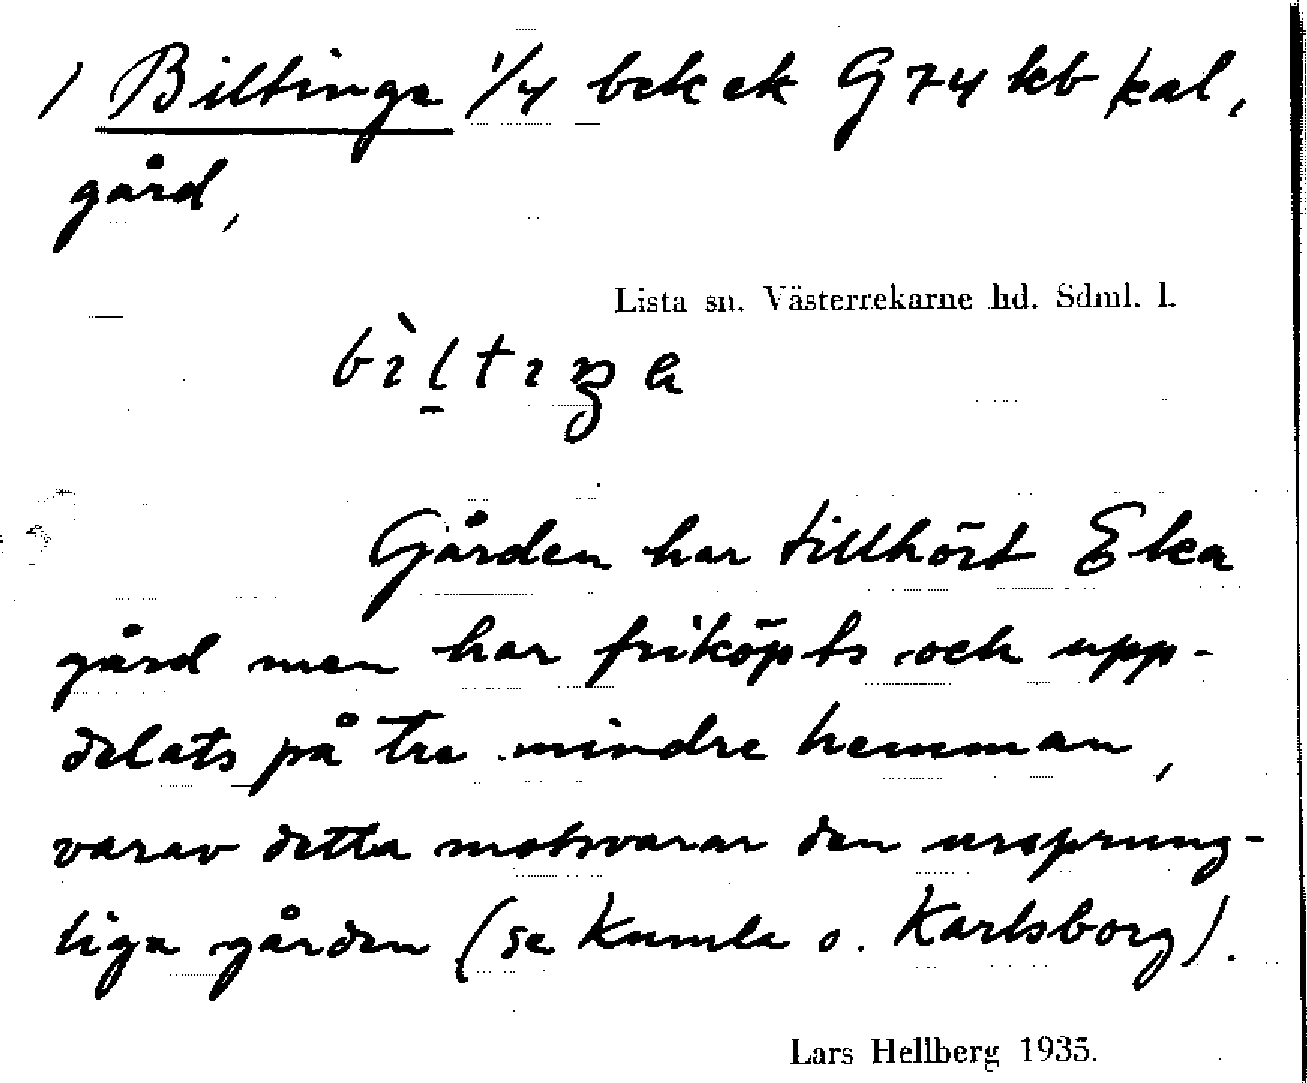 1 Biltinga 1/4 bek ek G 74 kb kal,
gård,
Lista sn. Västerrekarne hd. Sdml. l.
bìltıŋa
Gården har tillhört Eka
gård men har friköpts och upp-
delats på tre mindre hemman,
varav detta motsvarar den ursprung-
liga gården (se Kumla o. Karlsborg).
Lars Hellberg 1935.